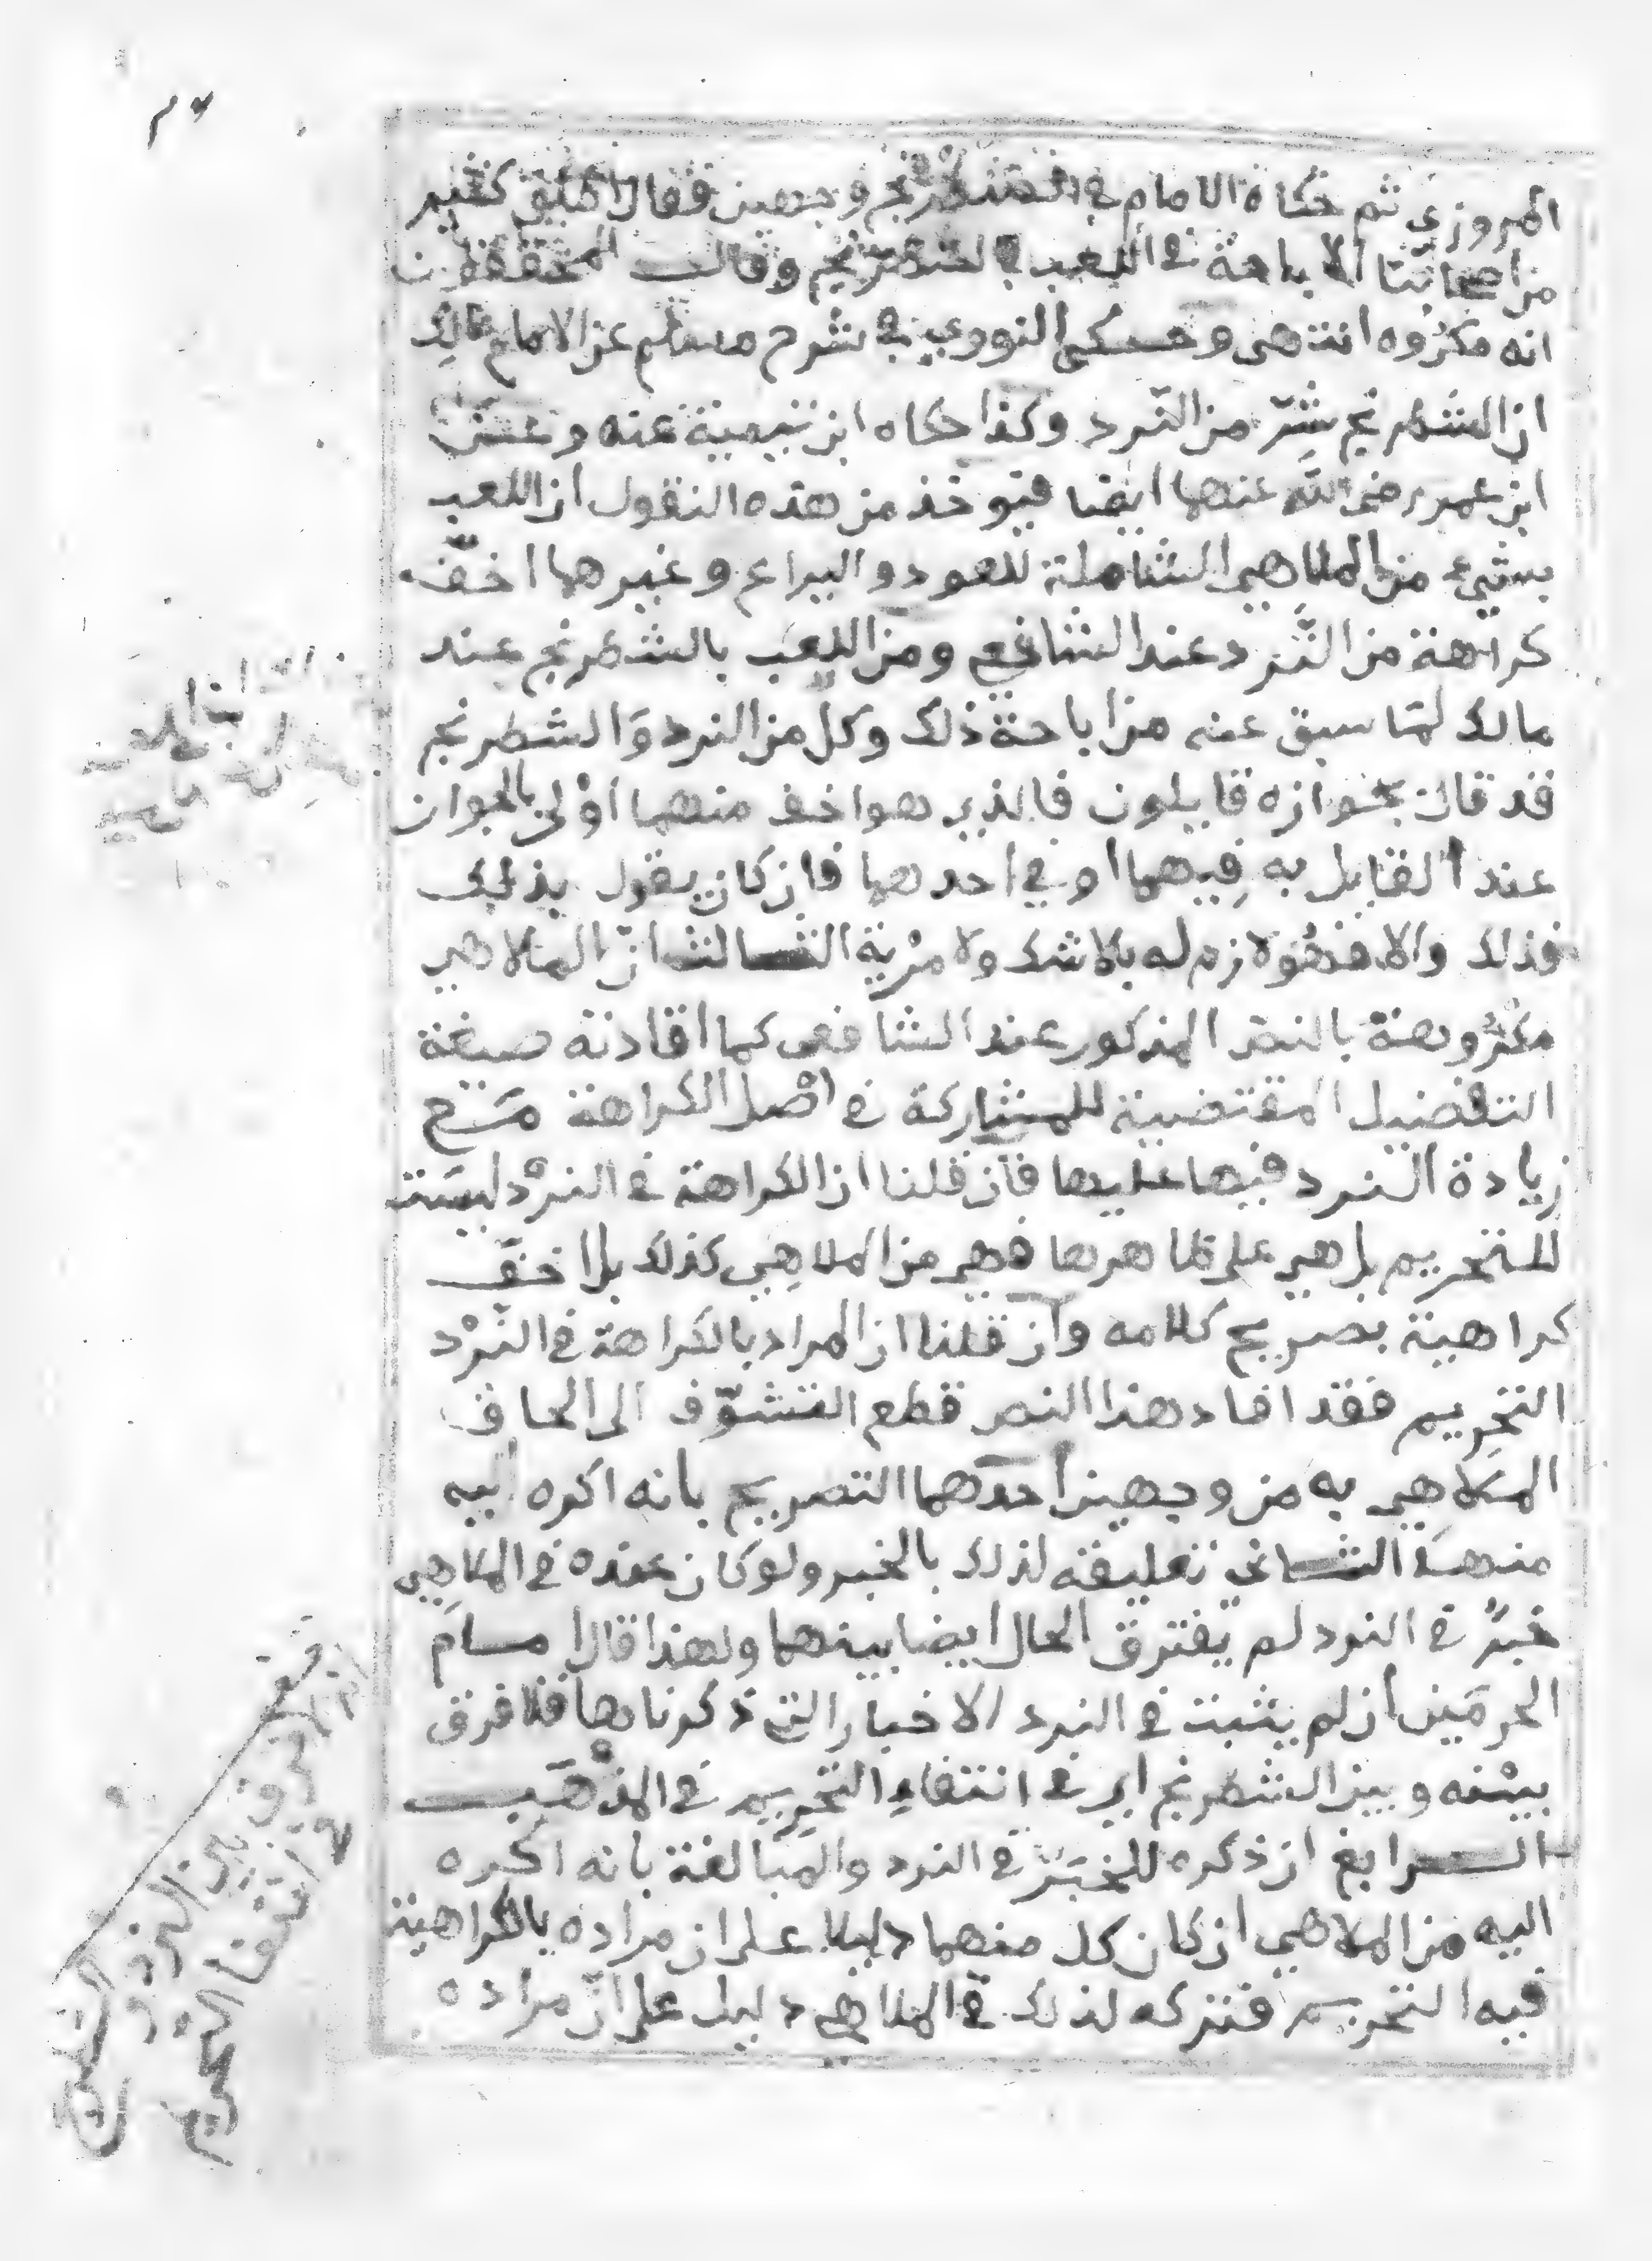 المروزي ثم حكاه الامام في الشطرنج وجهين فقال اطلق كثير
من اصحابنا الاباحة في اللعب بالشطرنج وقالت المحققون
انه مكروه انتهى وحكى النووي في شرح مسلم عن الامام مالك
ان الشطرنج شرّ من النّرد وكذا حكاه ابن تيمية عنه وعن
ابن عمر رضي الله عنهما ايضا فيوخذ من هذه النقول ان اللعب
بشيء من الملاهي الشاملة للعود واليراع وغيرها اخفّ
كراهة من النَّرد عند الشافعي ومن اللعب بالشطرنج عند
مالك لمَا سبق عنه من اباحة ذلك وكل من النرد وَالشطرنج
قد قال بجوازه قايلون فالذي هو اخف منهما اوْلى بالجواز
عند القايل به فِيهما او في احدهما فان كان يقول بذلك
فذلك والا فهُوَ لازم له بلا شك ولا مرْية الثالث انّ الملاهي
مكرُوهة بالنص المذكور عند الشافعي كما افادته صيغة
التفضيل المقتضية للمشاركة في اصْل الكراهة مَع
زيادة النرد فيها عليها فان قلنا ان الكراهة في النرْد ليسَت
للتحريم بل هي على ظاهرها فهي من الملاهِي كذلك بل اخفّ
كراهية بصريح كلامه وان قلنا ان المراد بالكراهة في النّرْد
التحرِيم فقد افاد هذا النص قطع التشوّف الى الحاق
الملاهِي به من وجهين أحدهما التصريح بانه اكره اليه
منهَا الثاني تعليقه لذلك بالخبر ولو كان عنده في الملاهِي
خبرٌ في النرد لم يفترق الحال ايضا بينهما ولهذا قال امام
الحرمَين ان لم يثبت في النرد الاخبار التي ذكرناها فلا فرق
بيْنه وبين الشطرنج اي في انتفاءِ التحرِيم في المذْهَب
الرابع ان ذكره للخبَر في النرد والمبَالغة بانه اكره
اليه من الملاهي ان كان كل منهما دليلا على ان مراده بالكراهية
فيه التحريم فتركه لذلك في الملاهي دليل على انّ مراده